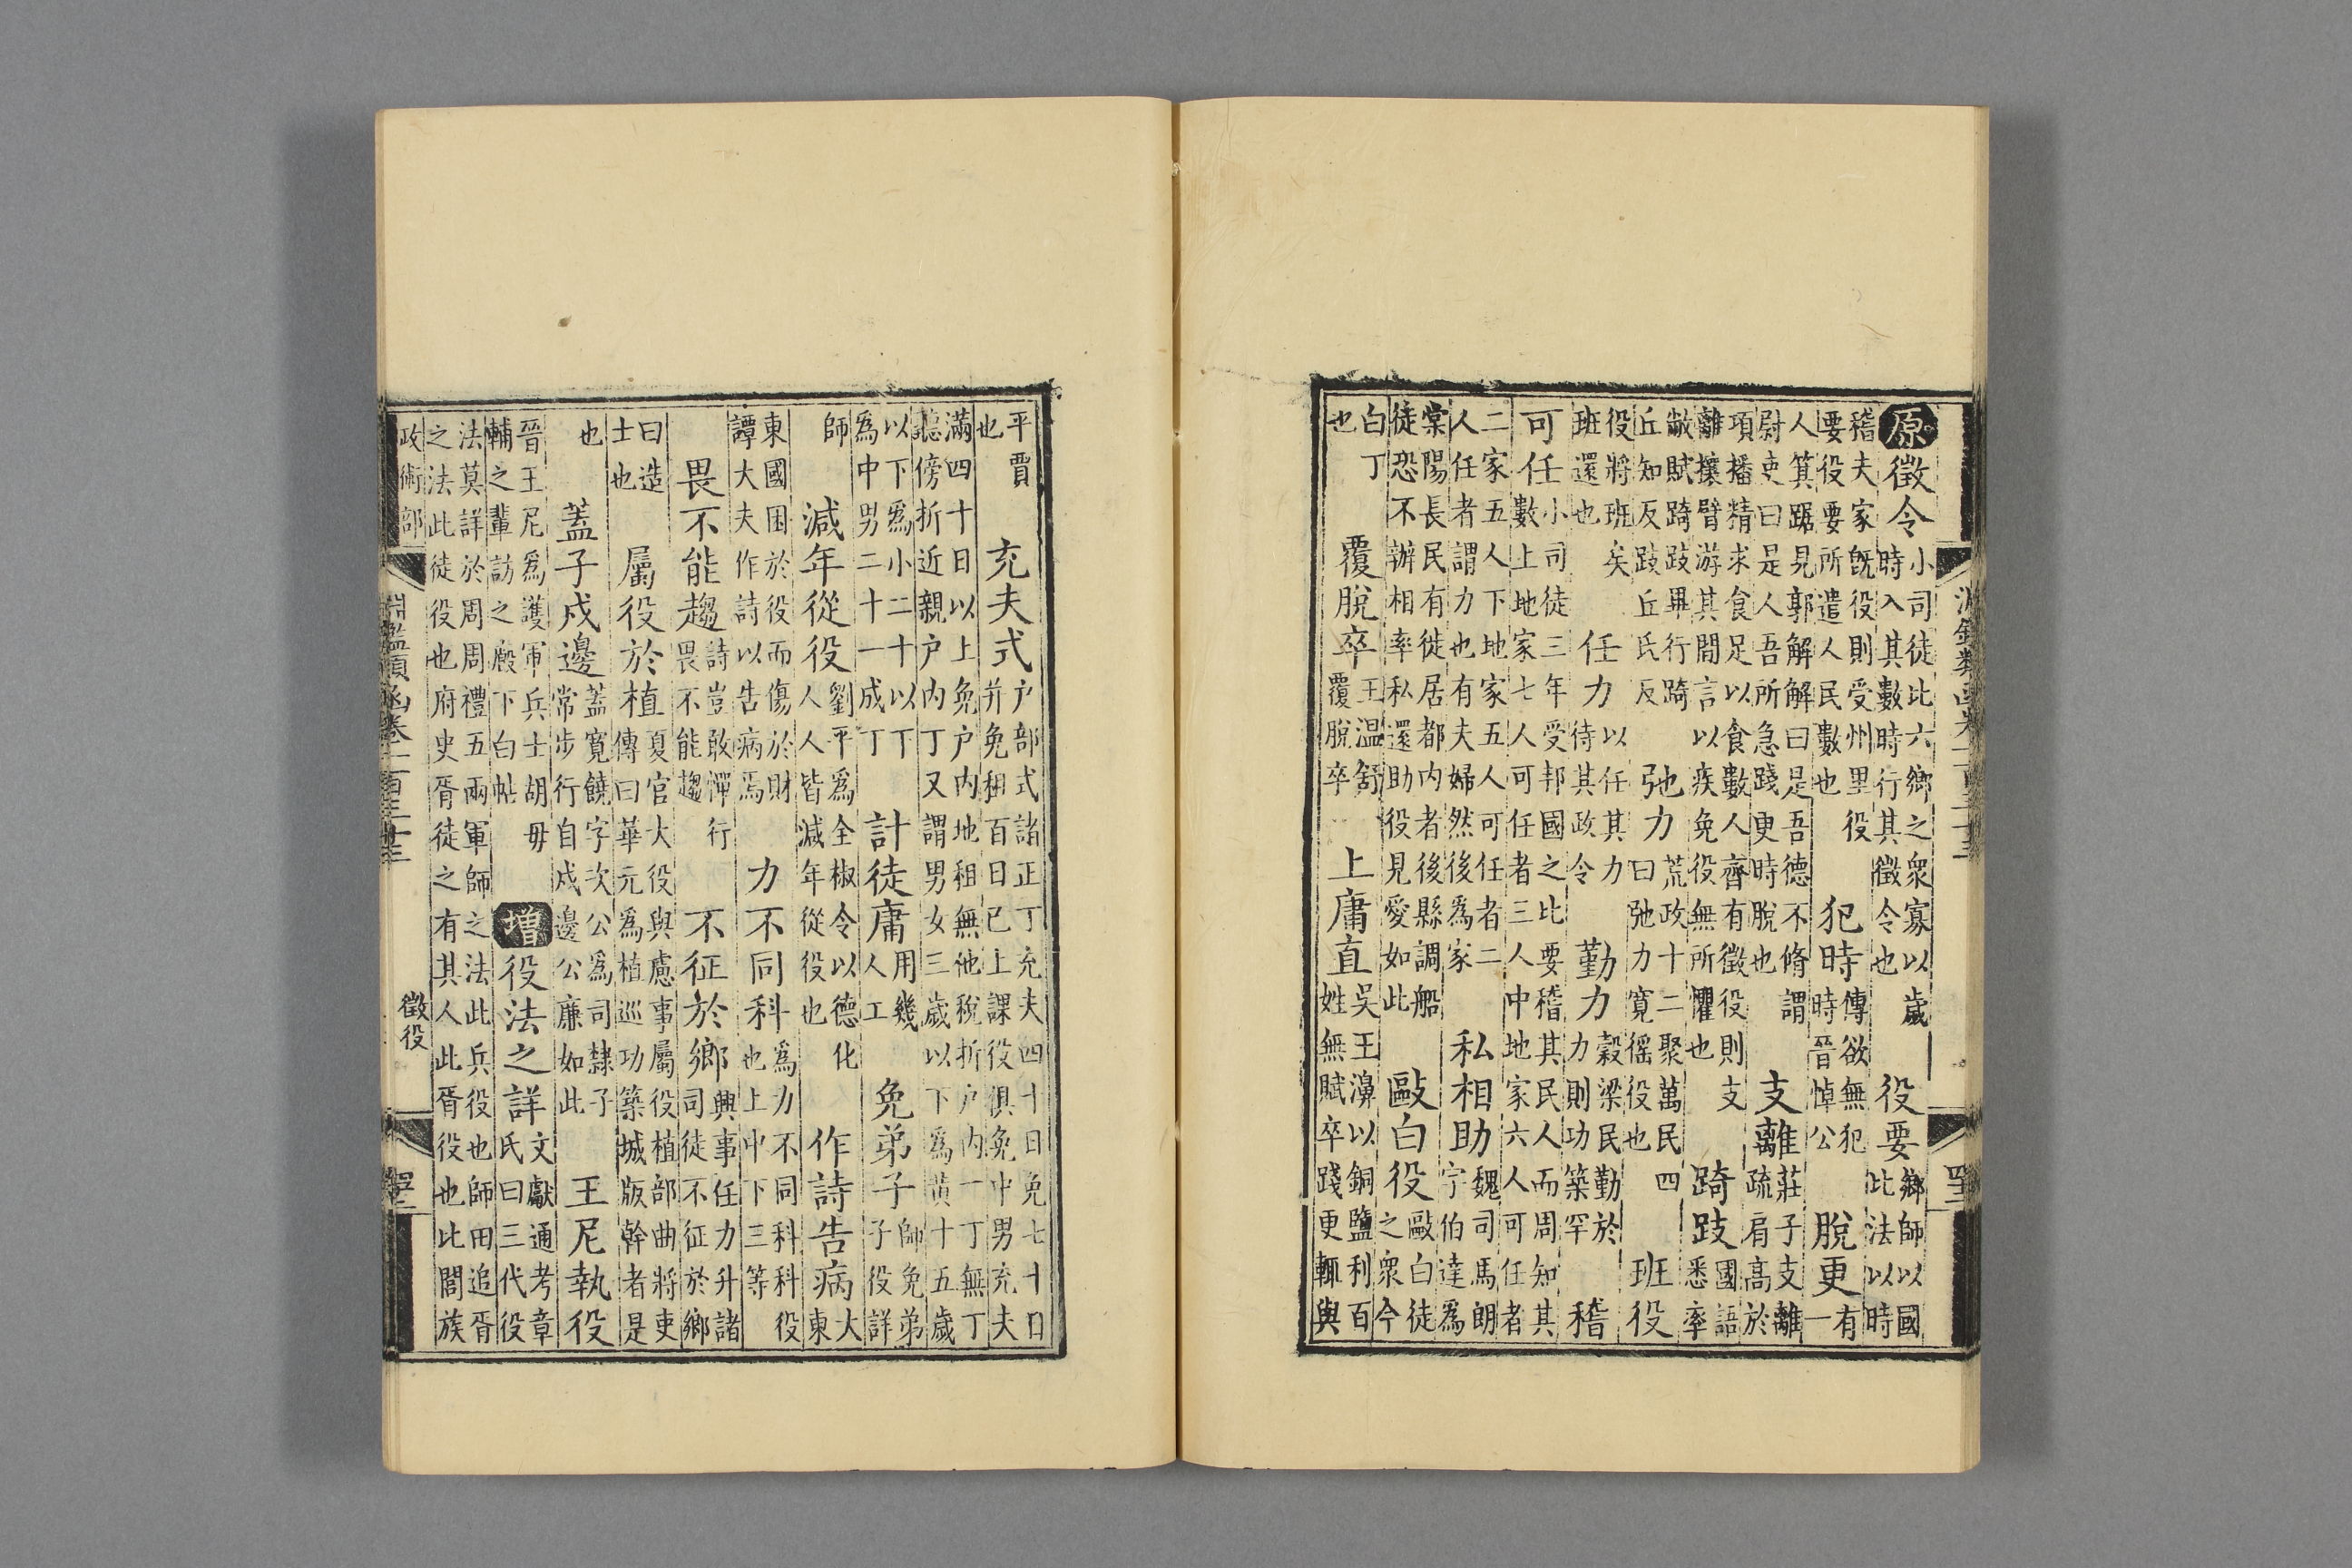 原徵令小司徒比六鄉之衆寡以歲時入其數時行其徵令也役要鄉師以國此法以時
稽夫家旣役則受州里役要役要所遣人民數也犯時傳欲無犯時晉悼公脫更有一
人箕踞見郭解解曰是吾德不脩謂尉吏曰是人吾所急踐更時脫也支離莊子支離疏肩高於
項播精求食足以食數人齊有徵役則支離攘臂游其間言以疾免役無所懼也踦跂國語悉率
敝賦踦跂畢行踦丘知反跂丘氏反弛力荒政十二聚萬民四曰弛力寬徭役也班役
役將班矣班還也任力以任其力待其政令勤力穀梁民勤於力則功築罕稽
可任小司徒三年受邦國之比要稽其民人而周知其數上地家七人可任者三人中地家六人可任者
二家五人下地家五人可任者二人任者謂力也有夫婦然後為家私相助魏司馬朗字伯達為
棠陽長民有徙居都內者後縣調船徒恐不辦相率私還助役見愛如此毆白役毆白徒之衆今
白丁也覆脫卒王温舒覆脫卒上庸直吳王濞以銅鹽利百姓無賦卒踐更輒與
平賈也充夫式户部式諸正丁充夫四十日免七十日并免租百日已上課役俱免中男充夫
滿四十日以上免户內地租無他稅折户內一丁無丁聽傍折近親户內丁又謂男女三歲以下為黃十五歲
以下為小二十以下為中男二十一成丁計徒庸用幾人工免弟子師免弟子役詳
師減年從役劉平為全椒令以德化人人皆減年從役也作詩告病大東
東國困於役而傷於財譚大夫作詩以告病焉力不同科為力不同科科役也上中下三等
畏不能趨詩豈敢憚行畏不能趨不征於鄉興事任力升諸司徒不征於鄉
曰造士也屬役於植夏官大役與慮事屬役植部曲將吏傳曰華元為植巡功築城版幹者是
也蓋子戍邊蓋寬饒字次公為司隸子常步行自戍邊公廉如此王尼執役
晉王尼為護軍兵士胡毋輔之輩訪之廄下白帖增役法之詳文獻通考章氏曰三代役
法莫詳於周周禮五兩軍師之法此兵役也師田追胥之法此徒役也府史胥徒之有其人此胥役也比閭族
政術部 淵鑑類函卷一百三十三 徵役